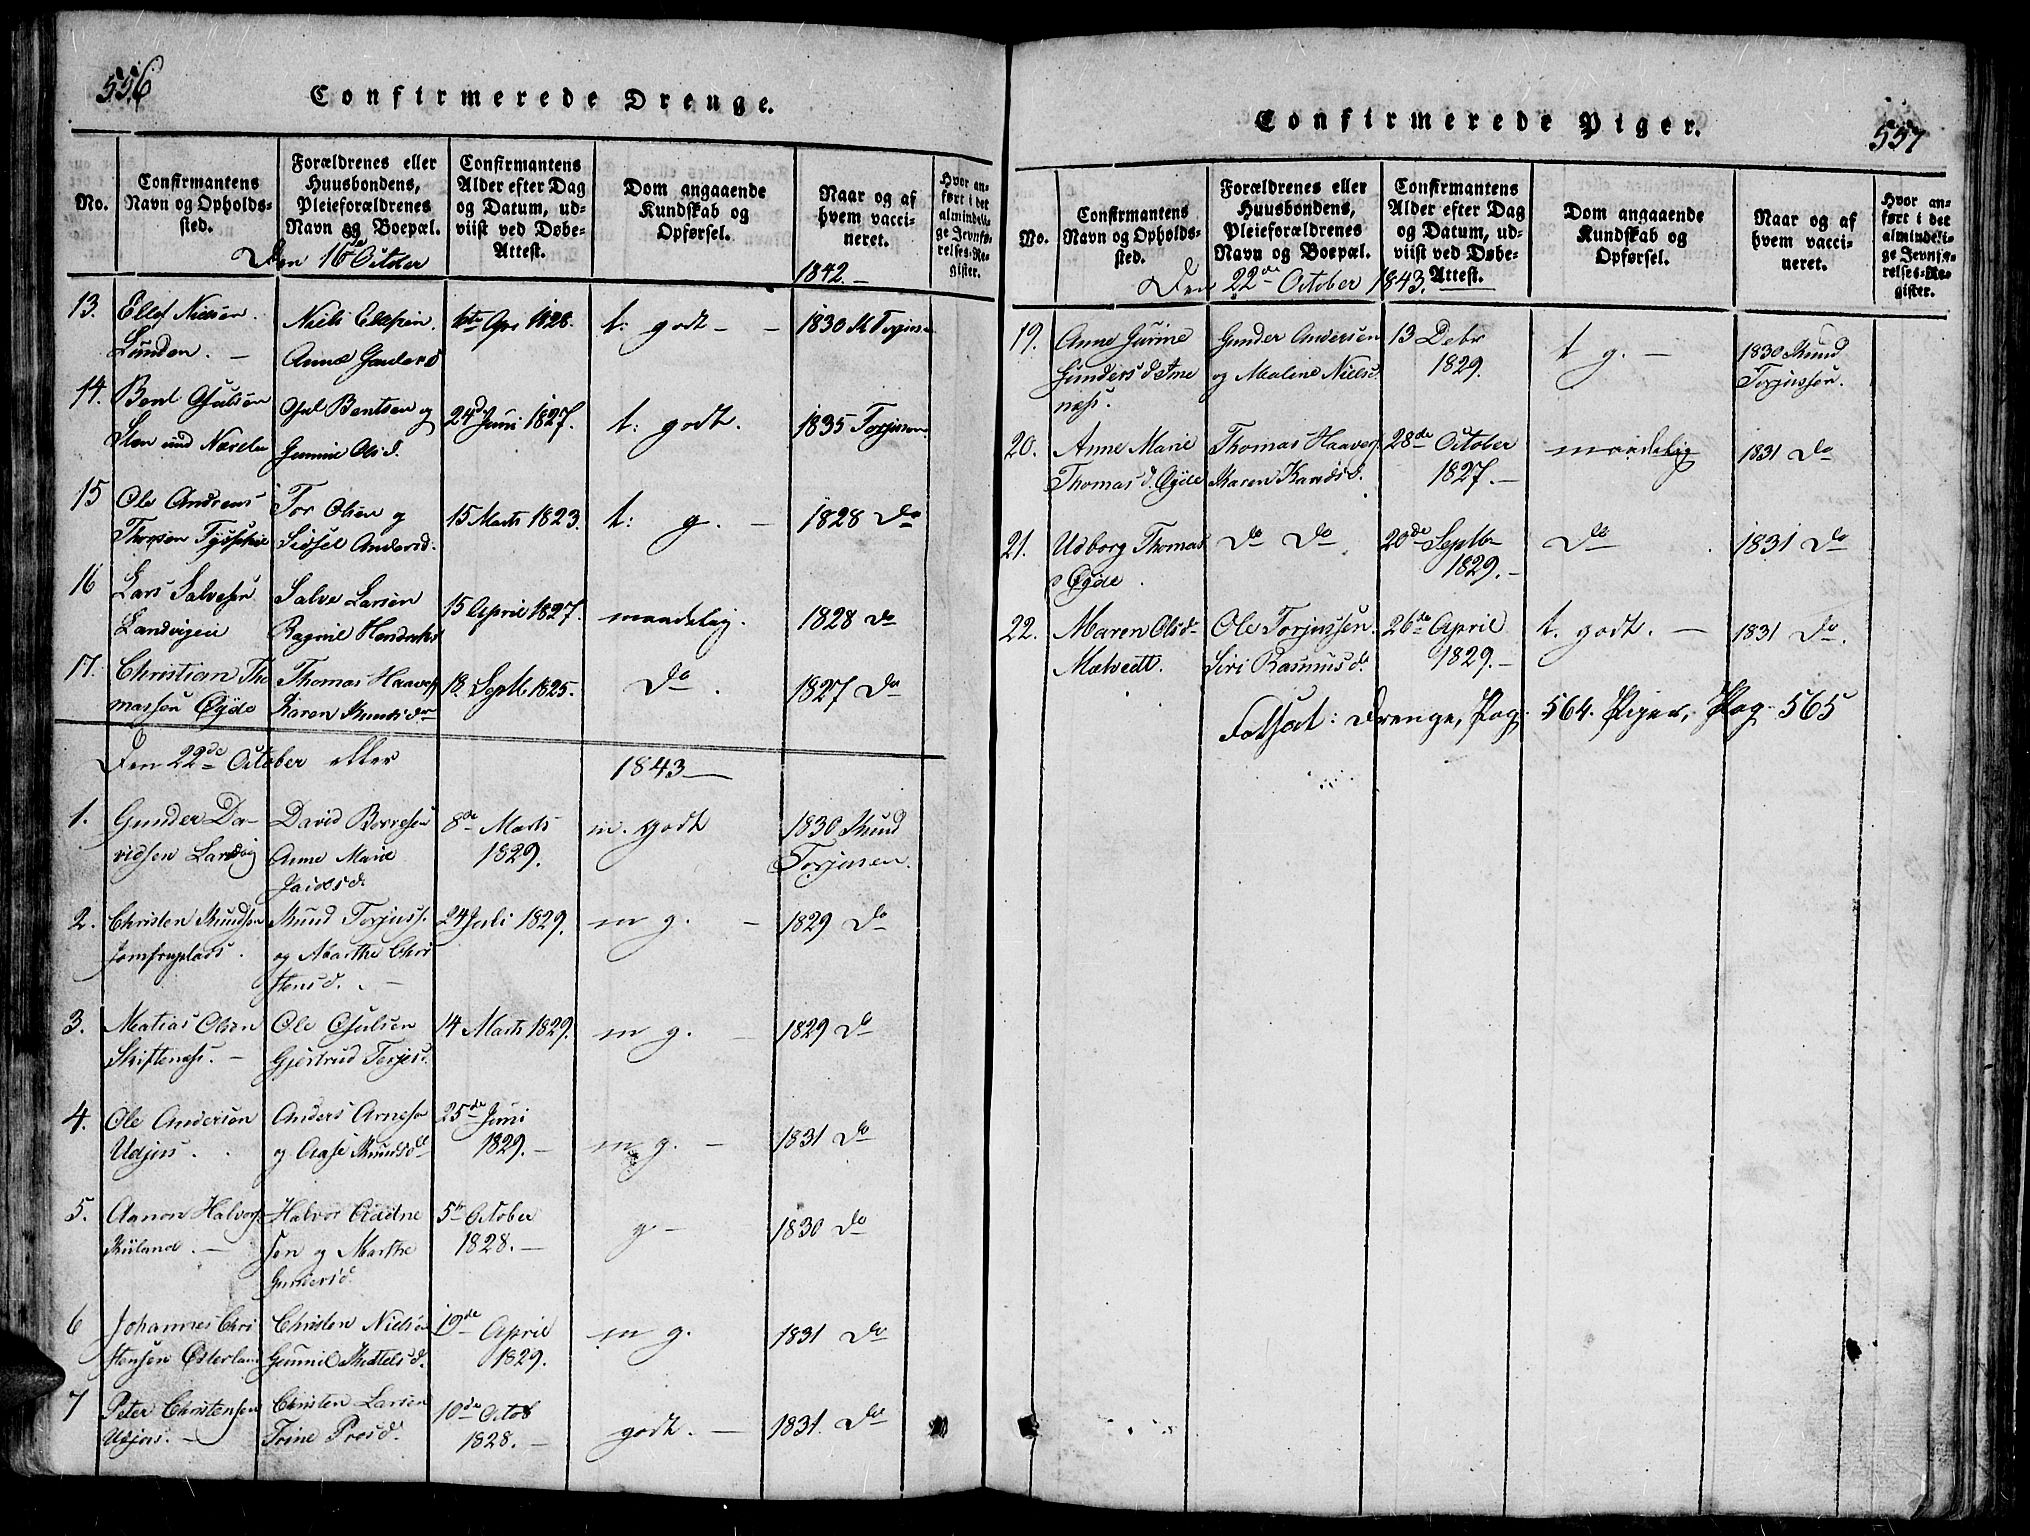 556
Confirmerede Drenge.
No.
Confirmantens Navn og Opholdssted.
Forældrenes eller Huusbondens, Pleieforældrenes Navn og Boepæl.
Confirmantens Alder efter Dag og Datum, udviist ved Døbe-Attest.
Dom angaaende Kundskab og Opførsel.
Naar og af hvem vaccineret.
Hvor anført i det almindelige Jevnførelses-Register.
Den 16de October 1842. —
13. Ellef Nielsen Lunden. — Niels Ellefsen Anne 6te Apr 1828. t: godt — — 1830 K Torjusen
14. Bent Osulsen Osul Bentsen og Gunnil Olsd. 24de Juni 1827. t: godt. 1835 Torjusen
15 Ole Andreas Thorsen Tor Olsen og Sidsel Andersd. 15 Marts 1823. t: g. — 1828 Do
16 Lars Salvesen Landvigen Salve Larsen Ragnil Hendriks 15 April 1827. maadelig. 1828 Do
17. Christian Thomassen Øgde Thomas Haavors Karen Knudsdr 18 Septb 1825. Do. 1827 Do
Den 22de October eller 1843 —
1. Gunder Davidsen Landvig David Berresen Anne Marie 8de Marts 1829. m. godt 1830 Knud Torjusen.
2. Christen Knudsen Jomfruplads. Knud Torjuss. og Marthe Christensd. — 24 Juli 1829. m g. — 1829 Do
3. Matias Olsen Skiftenæs. — Ole Osulsen Gjertrud Terjesd. 14 Marts 1829. m g. — 1829 Do
4. Ole Andersen Udjus. Anders Arnesen og Aase Knudsd 25de Juni 1829. — m g. — 1831 Do
5. Aanon Halvors. Ruland. — Halvor Aadnesen og Marthe Gundersd. 5te October 1828. — g. — 1830 Do
6 Johannes Christensen Østerland Christen Nielsen Gunnil Kittelsd. 19de April 1829. m g. 1831 Do
7 Peter Christensen Udjus. — Christen Larsen Trine Prosd. 10de Octob 1828. — godt. — 1831. Do
557
Confirmerede Piger.
No.
Confirmantens Navn og Opholdssted.
Forældrenes eller Huusbondens, Pleieforældrenes Navn og Boepæl.
Confirmantens Alder efter Dag og Datum, udviist ved Døbe-Attest.
Dom angaaende Kundskab og Opførsel.
Naar og af hvem vaccineret.
Hvor anført i det almindelige Jevnførelses-Register.
Den 22de October 1843.
19. Anne Gurine Gundersd. Gunder Andersen og Malene Nielsd. 13 Debr 1829. t g. — 1830 Knud Torjussen.
20. Anne Marie Thomasd. Øgde Thomas Haavors. Karen Knudsd. 28de October 1827. — maadelig 1831 Do
21. Udborg Thomasd Øgde. Do Do 20de Septbr 1829. — Do 1831 Do
22. Maren Olsd. Molvedt. Ole Torjussen. Siri Rasmusd. 26de April 1829. — t. godt. — 1831 Do.
Fortsat: Drenge, Pag. 564. Piger, Pag. 565